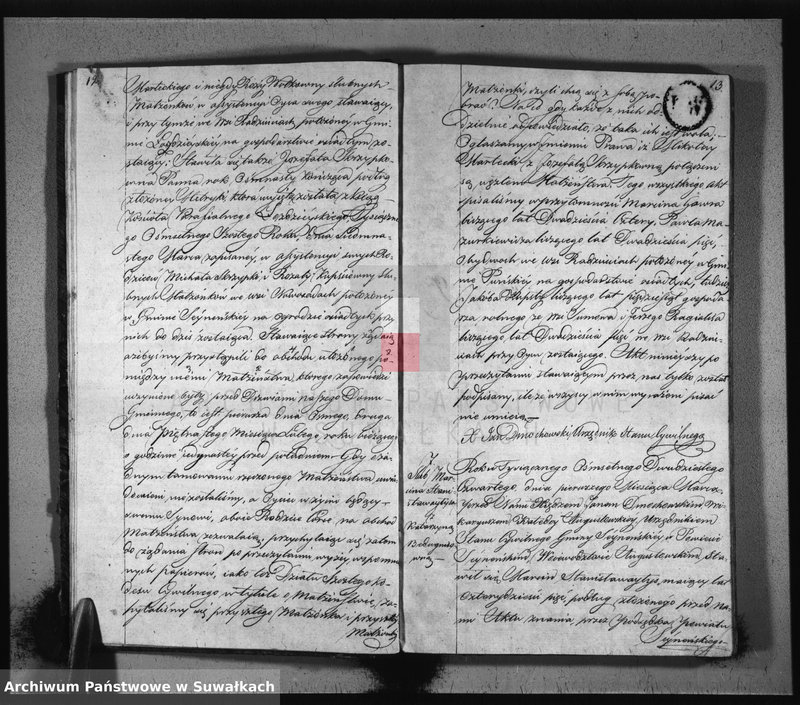 12
Martickiego i niegdy Rozyi Wotkowny slubnych
Małżonków w assystencyi Oyca swego stawaiący,
i przy tymże we wsi Radziuciach położoney w Gmi-
nie Łoździeyskiey na gospodarstwie osiadłym zo-
staiący. Stawiła się także Jozefata Skrzypko-
wna Panna rok Osmnasty kończąca podług
złożoney Metryki która wyięta została z Xiąg
Kościoła Parafialnego Łoździeyskiego Tysiączne-
go Ośmsetnego Szostego Roku, Dnia Siedmna-
stego Marca zapisaney, w assystencyi swych Ro-
dziców, Michała Skrzypki i Rozalii Kapsiówny Slu-
bnych Małżonków we wsi położoney
w Gminie Seyneńskiey na ogrodzie osiadłych przy
nich do dziś zostaiąca. Stawaiące strony żądaią
ażebyśmy przystąpili do obchodu ułożonego po-
między niemi Małżeństwa, którego zapowiedzi
uczynione były przed Drzwiami naszego Domu
Gminnego, to iest pierwsza dnia Osmego, druga
dnia Piętnastego Miesiąca Lutego, roku bieżącego
o godzinie dwunastey przed południem. Gdy o ża-
dnym tamowaniu rzeczonego Małżeństwa uwia-
domieni nie zostaliśmy, a Oyciec wżyiu będący
swemu Synowi, obие Rodzice Córce, na obchod
Małżeństwa zezwalaią, przychylaiąc się zatem
do żądania Stron po przeczytaniu wyżey wspomnio-
nych papierów, iako też Działu Szostego Ko-
dexu Cywilnego w tytule o Małżeństwie, za-
pytaliśmy się przyszłego Małżonka i przyszłey
Małżonki
13
Małżonki, czyli chcą się z sobą po-
brać? Na co gdy każde z nich od-
dzielnie odpowiedziało, że taka ich iest wola,
Ogłaszamy w imieniu Prawa iż Mikołay
Martecki z Jozefatą Skrzypkowną połączeni
są węzłem Małżeństwa. Tego wszystkiego akt
spisaliśmy w przytomności Marcina Ławra
liczącego lat Dwadzieścia Cztery, Pawła Ma-
zurkiewicza liczącego lat Dwadzieścia pięć,
obydwoch we wsi Radziuciach położoney w Gmi-
nie Puńskiey na gospodarstwie osiadłych, tudzież
Jakóba liczącego lat pięćdziesiąt gospoda-
rza rolnego ze wsi Sumowa i Jerzego Ragielita
liczącego lat Dwadzieścia pięć we wsi Radziu-
ciach przy Oycu zostaiącego. Akt ninieyszy po
przeczytaniu stawaiącym przez nas tylko został
podpisany, ile że wszyscy w nim wyrażeni pisać
nie umieią.
X Jan Dmochowski Urzędnik Stanu Cywilnego
7
Slub Mar-
cina Stani-
sławaytysa
z
Katarzyną
Roku Tysiącznego Ośmsetnego Dwudziestego
Czwartego, dnia pierwszego Miesiąca Marca.
Przed Nami Xiędzem Janem Dmochowskim Wi-
karyuszem Katedry Augustowskiey, Urzędnikiem
Stanu Cywilnego Gminy Seyneńskiey w Powiecie
Seyneńskim, Woiewodztwie Augustowskim, Sta-
wił się Marcin Stanisławaytys, maiący lat
Czterdzieści pięć podług złożonego przed Na-
mi Aktu znania przez Podsędka Powiatu
Seyneńskiego
Archiwum Państwowe w Suwałkach